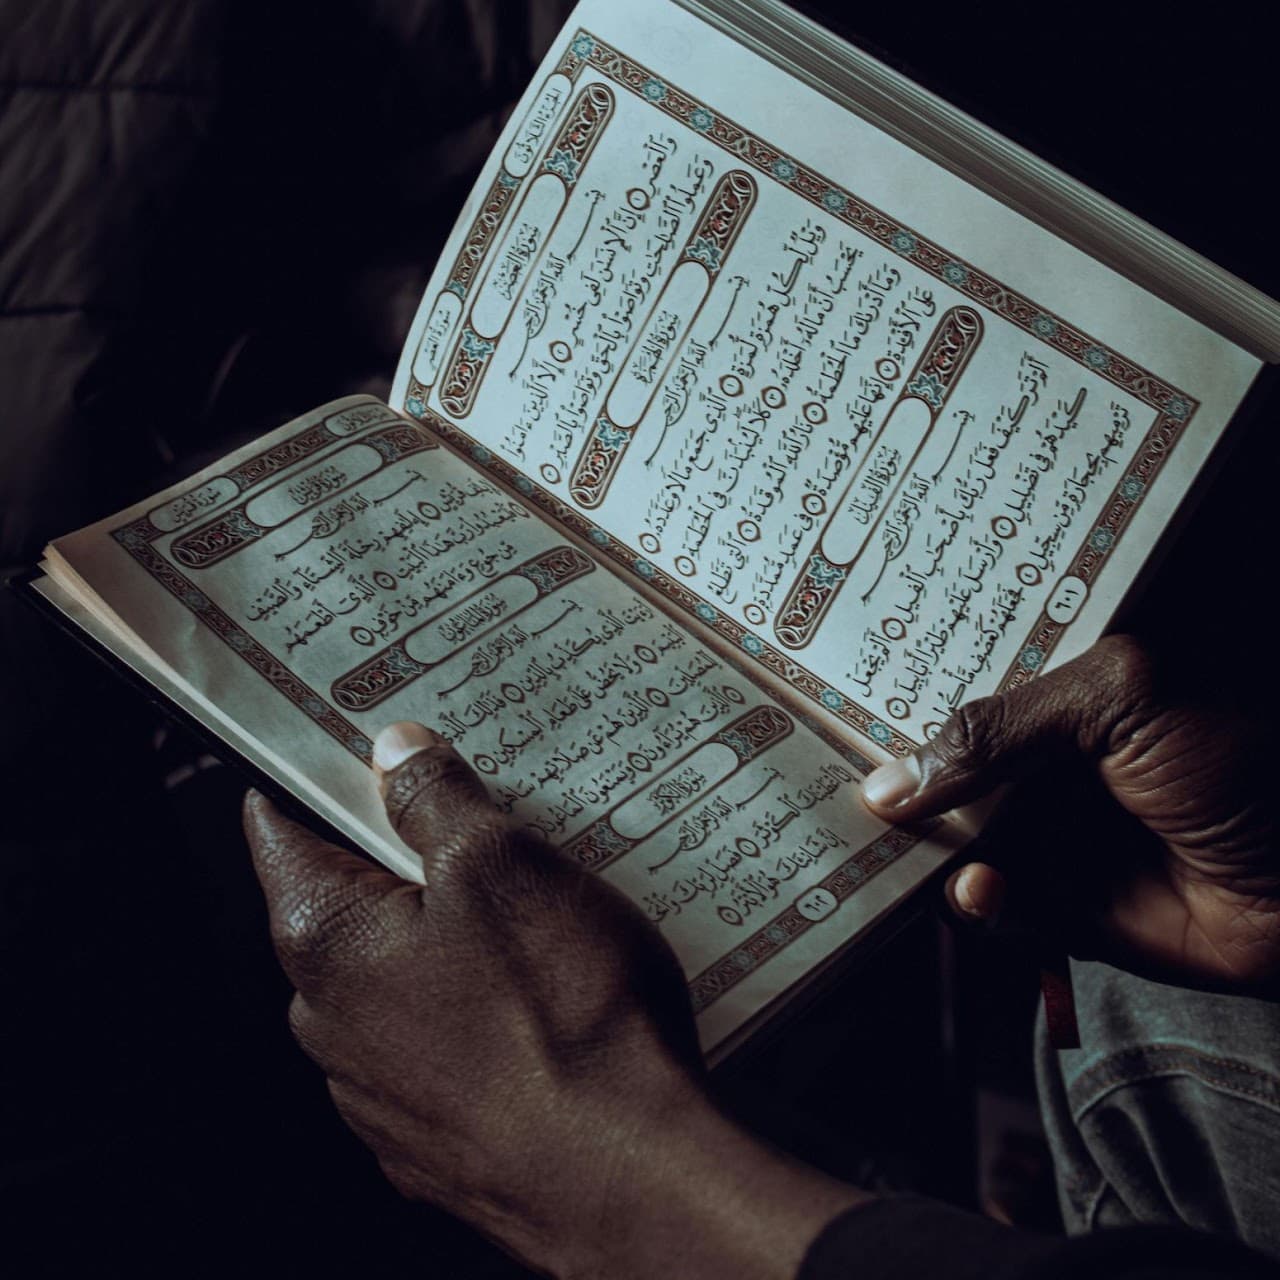 سُورَةُ العَصْرِ
الجُزْءُ الثَّلَاثُونَ
سُورَةُ العَصْرِ
بِسْمِ اللَّهِ الرَّحْمَٰنِ الرَّحِيمِ
وَٱلْعَصْرِ ۝١ إِنَّ ٱلْإِنسَٰنَ لَفِى خُسْرٍ ۝٢ إِلَّا ٱلَّذِينَ ءَامَنُوا۟
وَعَمِلُوا۟ ٱلصَّٰلِحَٰتِ وَتَوَاصَوْا۟ بِٱلْحَقِّ وَتَوَاصَوْا۟ بِٱلصَّبْرِ ۝٣
سُورَةُ الهُمَزَةِ
بِسْمِ اللَّهِ الرَّحْمَٰنِ الرَّحِيمِ
وَيْلٌ لِّكُلِّ هُمَزَةٍ لُّمَزَةٍ ۝١ ٱلَّذِى جَمَعَ مَالًا وَعَدَّدَهُۥ ۝٢
يَحْسَبُ أَنَّ مَالَهُۥٓ أَخْلَدَهُۥ ۝٣ كَلَّا لَيُنۢبَذَنَّ فِى ٱلْحُطَمَةِ ۝٤
وَمَآ أَدْرَىٰكَ مَا ٱلْحُطَمَةُ ۝٥ نَارُ ٱللَّهِ ٱلْمُوقَدَةُ ۝٦ ٱلَّتِى تَطَّلِعُ
عَلَى ٱلْأَفْـِٔدَةِ ۝٧ إِنَّهَا عَلَيْهِم مُّؤْصَدَةٌ ۝٨ فِى عَمَدٍ مُّمَدَّدَةٍۭ ۝٩
سُورَةُ الفِيلِ
بِسْمِ اللَّهِ الرَّحْمَٰنِ الرَّحِيمِ
أَلَمْ تَرَ كَيْفَ فَعَلَ رَبُّكَ بِأَصْحَٰبِ ٱلْفِيلِ ۝١ أَلَمْ يَجْعَلْ
كَيْدَهُمْ فِى تَضْلِيلٍ ۝٢ وَأَرْسَلَ عَلَيْهِمْ طَيْرًا أَبَابِيلَ ۝٣
تَرْمِيهِم بِحِجَارَةٍ مِّن سِجِّيلٍ ۝٤ فَجَعَلَهُمْ كَعَصْفٍ مَّأْكُولٍۭ ۝٥
٦٠١
سُورَةُ قُرَيْشٍ
سُورَةُ قُرَيْشٍ
بِسْمِ اللَّهِ الرَّحْمَٰنِ الرَّحِيمِ
لِإِيلَٰفِ قُرَيْشٍ ۝١ إِۦلَٰفِهِمْ رِحْلَةَ ٱلشِّتَآءِ وَٱلصَّيْفِ ۝٢
فَلْيَعْبُدُوا۟ رَبَّ هَٰذَا ٱلْبَيْتِ ۝٣ ٱلَّذِىٓ أَطْعَمَهُم
مِّن جُوعٍ وَءَامَنَهُم مِّنْ خَوْفٍۭ ۝٤
سُورَةُ المَاعُونِ
بِسْمِ اللَّهِ الرَّحْمَٰنِ الرَّحِيمِ
أَرَءَيْتَ ٱلَّذِى يُكَذِّبُ بِٱلدِّينِ ۝١ فَذَٰلِكَ ٱلَّذِى
ٱلْيَتِيمَ ۝٢ وَلَا يَحُضُّ عَلَىٰ طَعَامِ ٱلْمِسْكِينِ ۝٣
لِّلْمُصَلِّينَ ۝٤ ٱلَّذِينَ هُمْ عَن صَلَاتِهِمْ سَاهُونَ
ٱلَّذِينَ هُمْ يُرَآءُونَ ۝٦ وَيَمْنَعُونَ ٱلْمَاعُونَ ۝٧
سُورَةُ الكَوْثَرِ
بِسْمِ اللَّهِ الرَّحْمَٰنِ الرَّحِيمِ
إِنَّآ أَعْطَيْنَٰكَ ٱلْكَوْثَرَ ۝١ فَصَلِّ لِرَبِّكَ وَٱنْحَرْ
إِنَّ شَانِئَكَ هُوَ ٱلْأَبْتَرُ ۝٣
٦٠٢